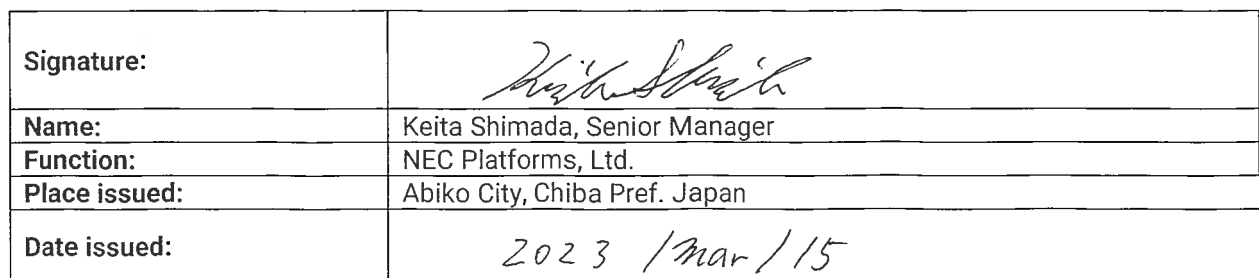 Signature: Keita Shimada
Name: Keita Shimada, Senior Manager
Function: NEC Platforms, Ltd.
Place issued: Abiko City, Chiba Pref. Japan
Date issued: 2023 / Mar / 15